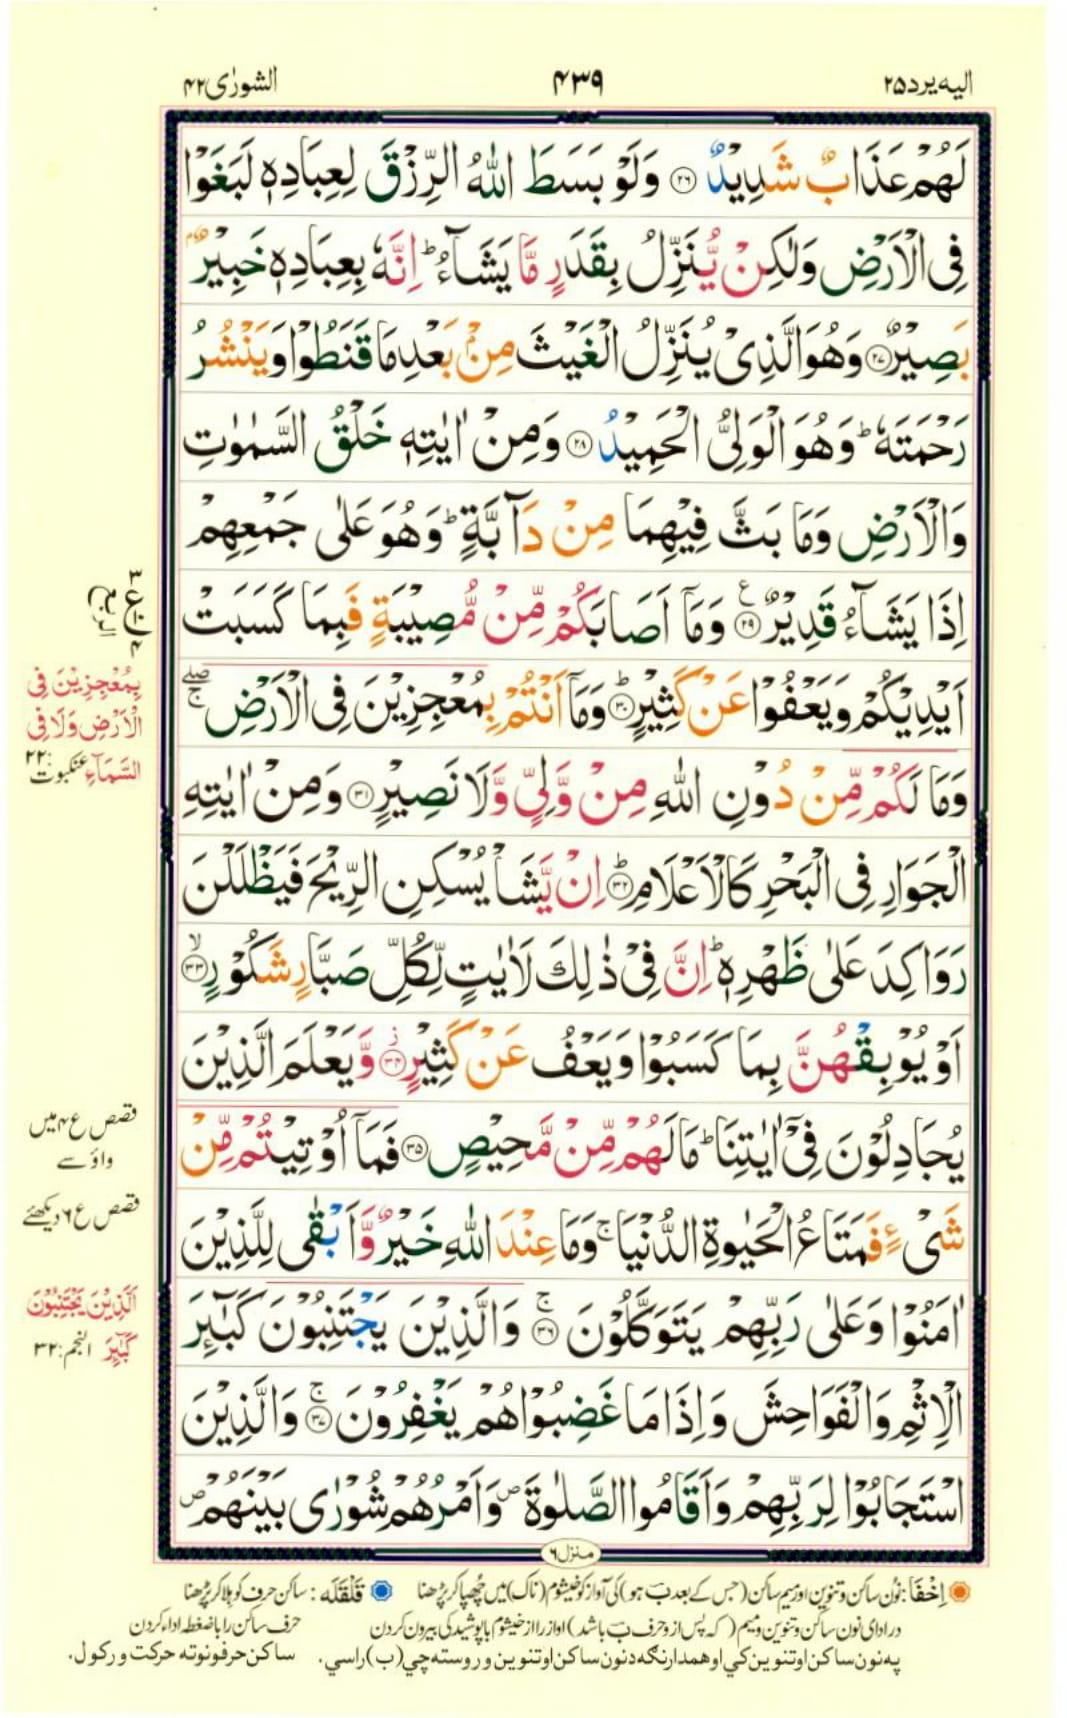 الیه یرد ۲۵
۴۳۹
الشورٰی ۴۲
لَهُمْ عَذَابٌ شَدِيْدٌ ۲۶ وَلَوْ بَسَطَ اللّٰهُ الرِّزْقَ لِعِبَادِهٖ لَبَغَوْا
فِى الْاَرْضِ وَلٰكِنْ يُّنَزِّلُ بِقَدَرٍ مَّا يَشَآءُ ؕ اِنَّهٗ بِعِبَادِهٖ خَبِيْرٌۢ
بَصِيْرٌ ۲۷ وَهُوَ الَّذِىْ يُنَزِّلُ الْغَيْثَ مِنْۢ بَعْدِ مَا قَنَطُوْا وَيَنْشُرُ
رَحْمَتَهٗ ؕ وَهُوَ الْوَلِىُّ الْحَمِيْدُ ۲۸ وَمِنْ اٰيٰتِهٖ خَلْقُ السَّمٰوٰتِ
وَالْاَرْضِ وَمَا بَثَّ فِيْهِمَا مِنْ دَآبَّةٍ ؕ وَهُوَ عَلٰى جَمْعِهِمْ
اِذَا يَشَآءُ قَدِيْرٌ ۲۹ ع وَمَآ اَصَابَكُمْ مِّنْ مُّصِيْبَةٍ فَبِمَا كَسَبَتْ
اَيْدِيْكُمْ وَيَعْفُوْا عَنْ كَثِيْرٍ ؕ ۳۰ وَمَآ اَنْتُمْ بِمُعْجِزِيْنَ فِى الْاَرْضِ ۖۚ
وَمَا لَكُمْ مِّنْ دُوْنِ اللّٰهِ مِنْ وَّلِىٍّ وَّلَا نَصِيْرٍ ۳۱ وَمِنْ اٰيٰتِهِ
الْجَوَارِ فِى الْبَحْرِ كَالْاَعْلَامِ ؕ ۳۲ اِنْ يَّشَاْ يُسْكِنِ الرِّيْحَ فَيَظْلَلْنَ
رَوَاكِدَ عَلٰى ظَهْرِهٖ ؕ اِنَّ فِىْ ذٰلِكَ لَاٰيٰتٍ لِّكُلِّ صَبَّارٍ شَكُوْرٍ ۙ ۳۳
اَوْ يُوْبِقْهُنَّ بِمَا كَسَبُوْا وَيَعْفُ عَنْ كَثِيْرٍ ز ۳۴ وَّيَعْلَمَ الَّذِيْنَ
يُجَادِلُوْنَ فِىْٓ اٰيٰتِنَا ؕ مَا لَهُمْ مِّنْ مَّحِيْصٍ ۳۵ فَمَآ اُوْتِيْتُمْ مِّنْ
شَىْءٍ فَمَتَاعُ الْحَيٰوةِ الدُّنْيَا ۚ وَمَا عِنْدَ اللّٰهِ خَيْرٌ وَّاَبْقٰى لِلَّذِيْنَ
اٰمَنُوْا وَعَلٰى رَبِّهِمْ يَتَوَكَّلُوْنَ ۚ ۳۶ وَالَّذِيْنَ يَجْتَنِبُوْنَ كَبٰٓئِرَ
الْاِثْمِ وَالْفَوَاحِشَ وَاِذَا مَا غَضِبُوْا هُمْ يَغْفِرُوْنَ ۚ ۳۷ وَالَّذِيْنَ
اسْتَجَابُوْا لِرَبِّهِمْ وَاَقَامُوا الصَّلٰوةَ ص وَاَمْرُهُمْ شُوْرٰى بَيْنَهُمْ ص
منزل ۶
۳ ع ۱۰ ۴
الربع
بِمُعْجِزِيْنَ فِى
الْاَرْضِ وَلَا فِى
السَّمَآءِ عنکبوت: ۲۲
قصص ع ۴ میں
واؤ سے
قصص ع ۶ دیکھئے
اَلَّذِيْنَ يَجْتَنِبُوْنَ
كَبٰٓئِرَ النجم: ۳۲
اِخْفَا: نُون ساکن و تنوین اور میم ساکن (جس کے بعد بَ ہو) کی آواز کو خیشوم (ناک) میں چُھپا کر پڑھنا قَلْقَلَه: ساکن حرف کو ہلا کر پڑھنا
در ادای نون ساکن و تنوین و میم (که پس از و حرف بَ باشد) آواز را از خیشوم با پوشیدگی بیرون کردن حرف ساکن را با ضغطه ادا کردن
په نون ساکن او تنوین کې او همدارنګه د نون ساکن او تنوین وروسته چې (ب) راسي. ساکن حرفونو ته حرکت ورکول.